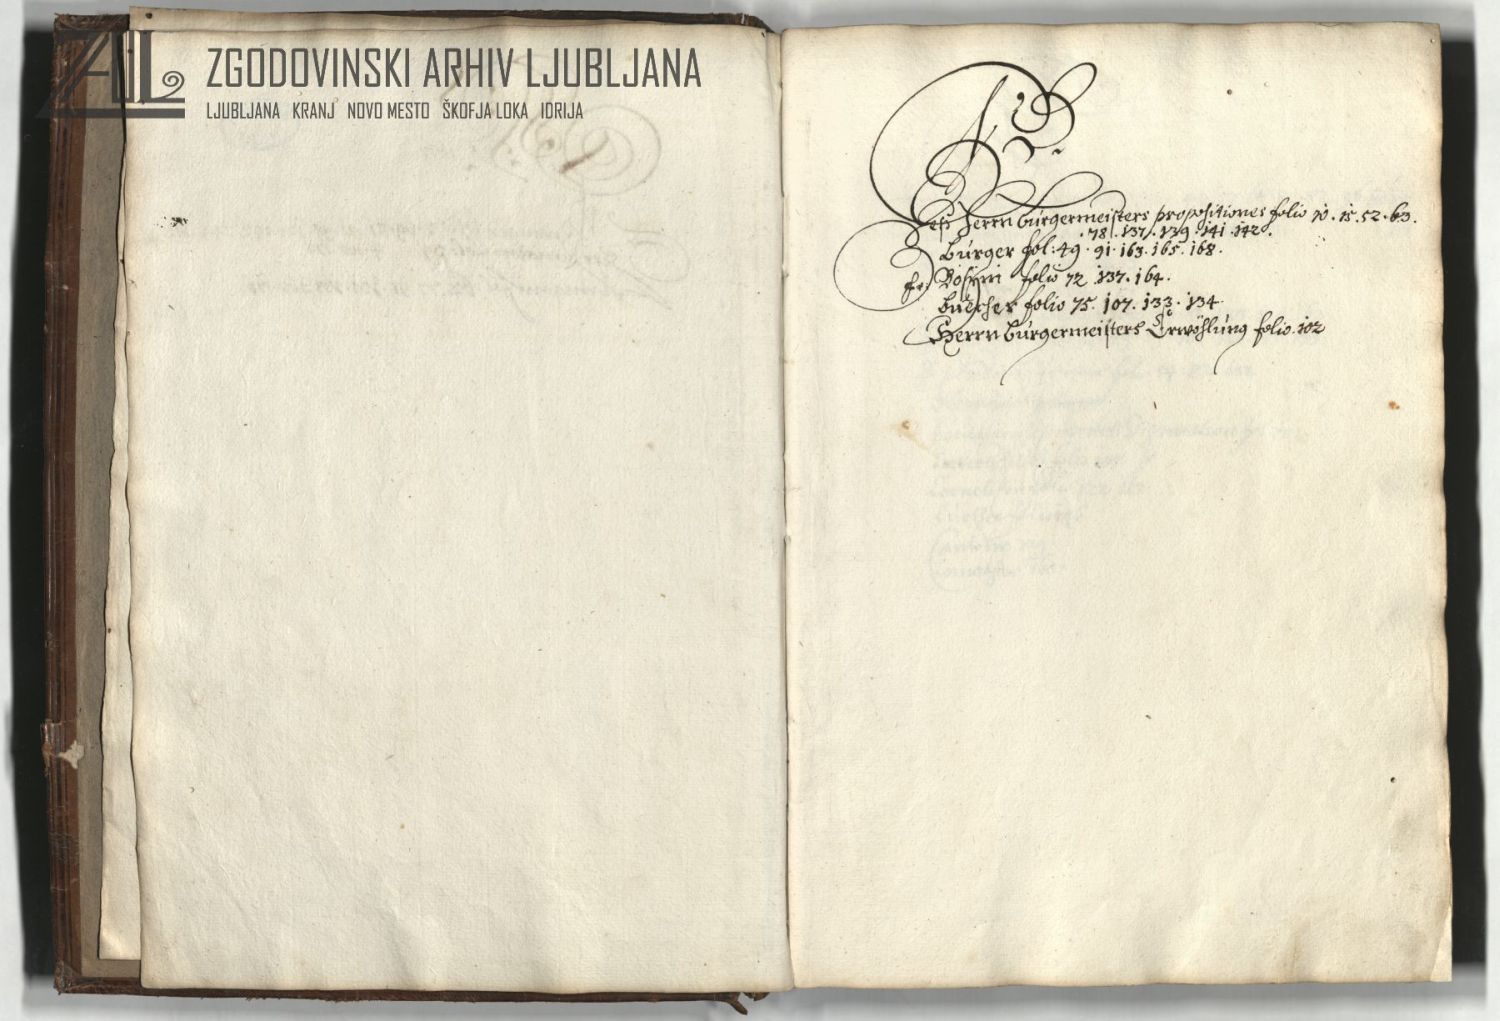 ZGODOVINSKI ARHIV LJUBLJANA
LJUBLJANA KRANJ NOVO MESTO ŠKOFJA LOKA IDRIJA
B.
Deß Herrn Burgermeisters propositiones folio 10. 15. 52. 63.
78. 137. 139. 141. 142.
Burger fol: 49. 91. 163. 165. 168.
folio 72. 137. 164.
Buecher folio 75. 107. 133. 134.
Herrn Burgermeisters Erwöhlung folio. 102